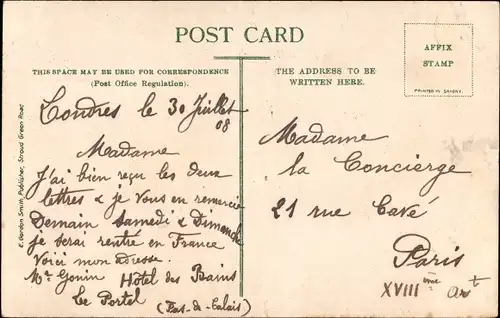 POST CARD
THIS SPACE MAY BE USED FOR CORRESPONDENCE
(Post Office Regulation).
THE ADDRESS TO BE
WRITTEN HERE.
AFFIX
STAMP
PRINTED IN SAXONY.
E. Gordon Smith, Publisher, Stroud Green Road
Londres le 30 Juillet
08
Madame
J'ai bien reçu les deux
lettres & je vous en remercie
Demain Samedi & Dimanche
je serai rentré en France
Voici mon adresse.
Mr Gonin Hôtel des Bains
Le Portel
(Pas-de-Calais)
Madame
la Concierge
21 rue Cavé
Paris
XVIIIème art